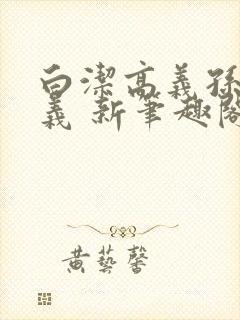 白潔高義孫
義 新筆趣閣
黄藝馨